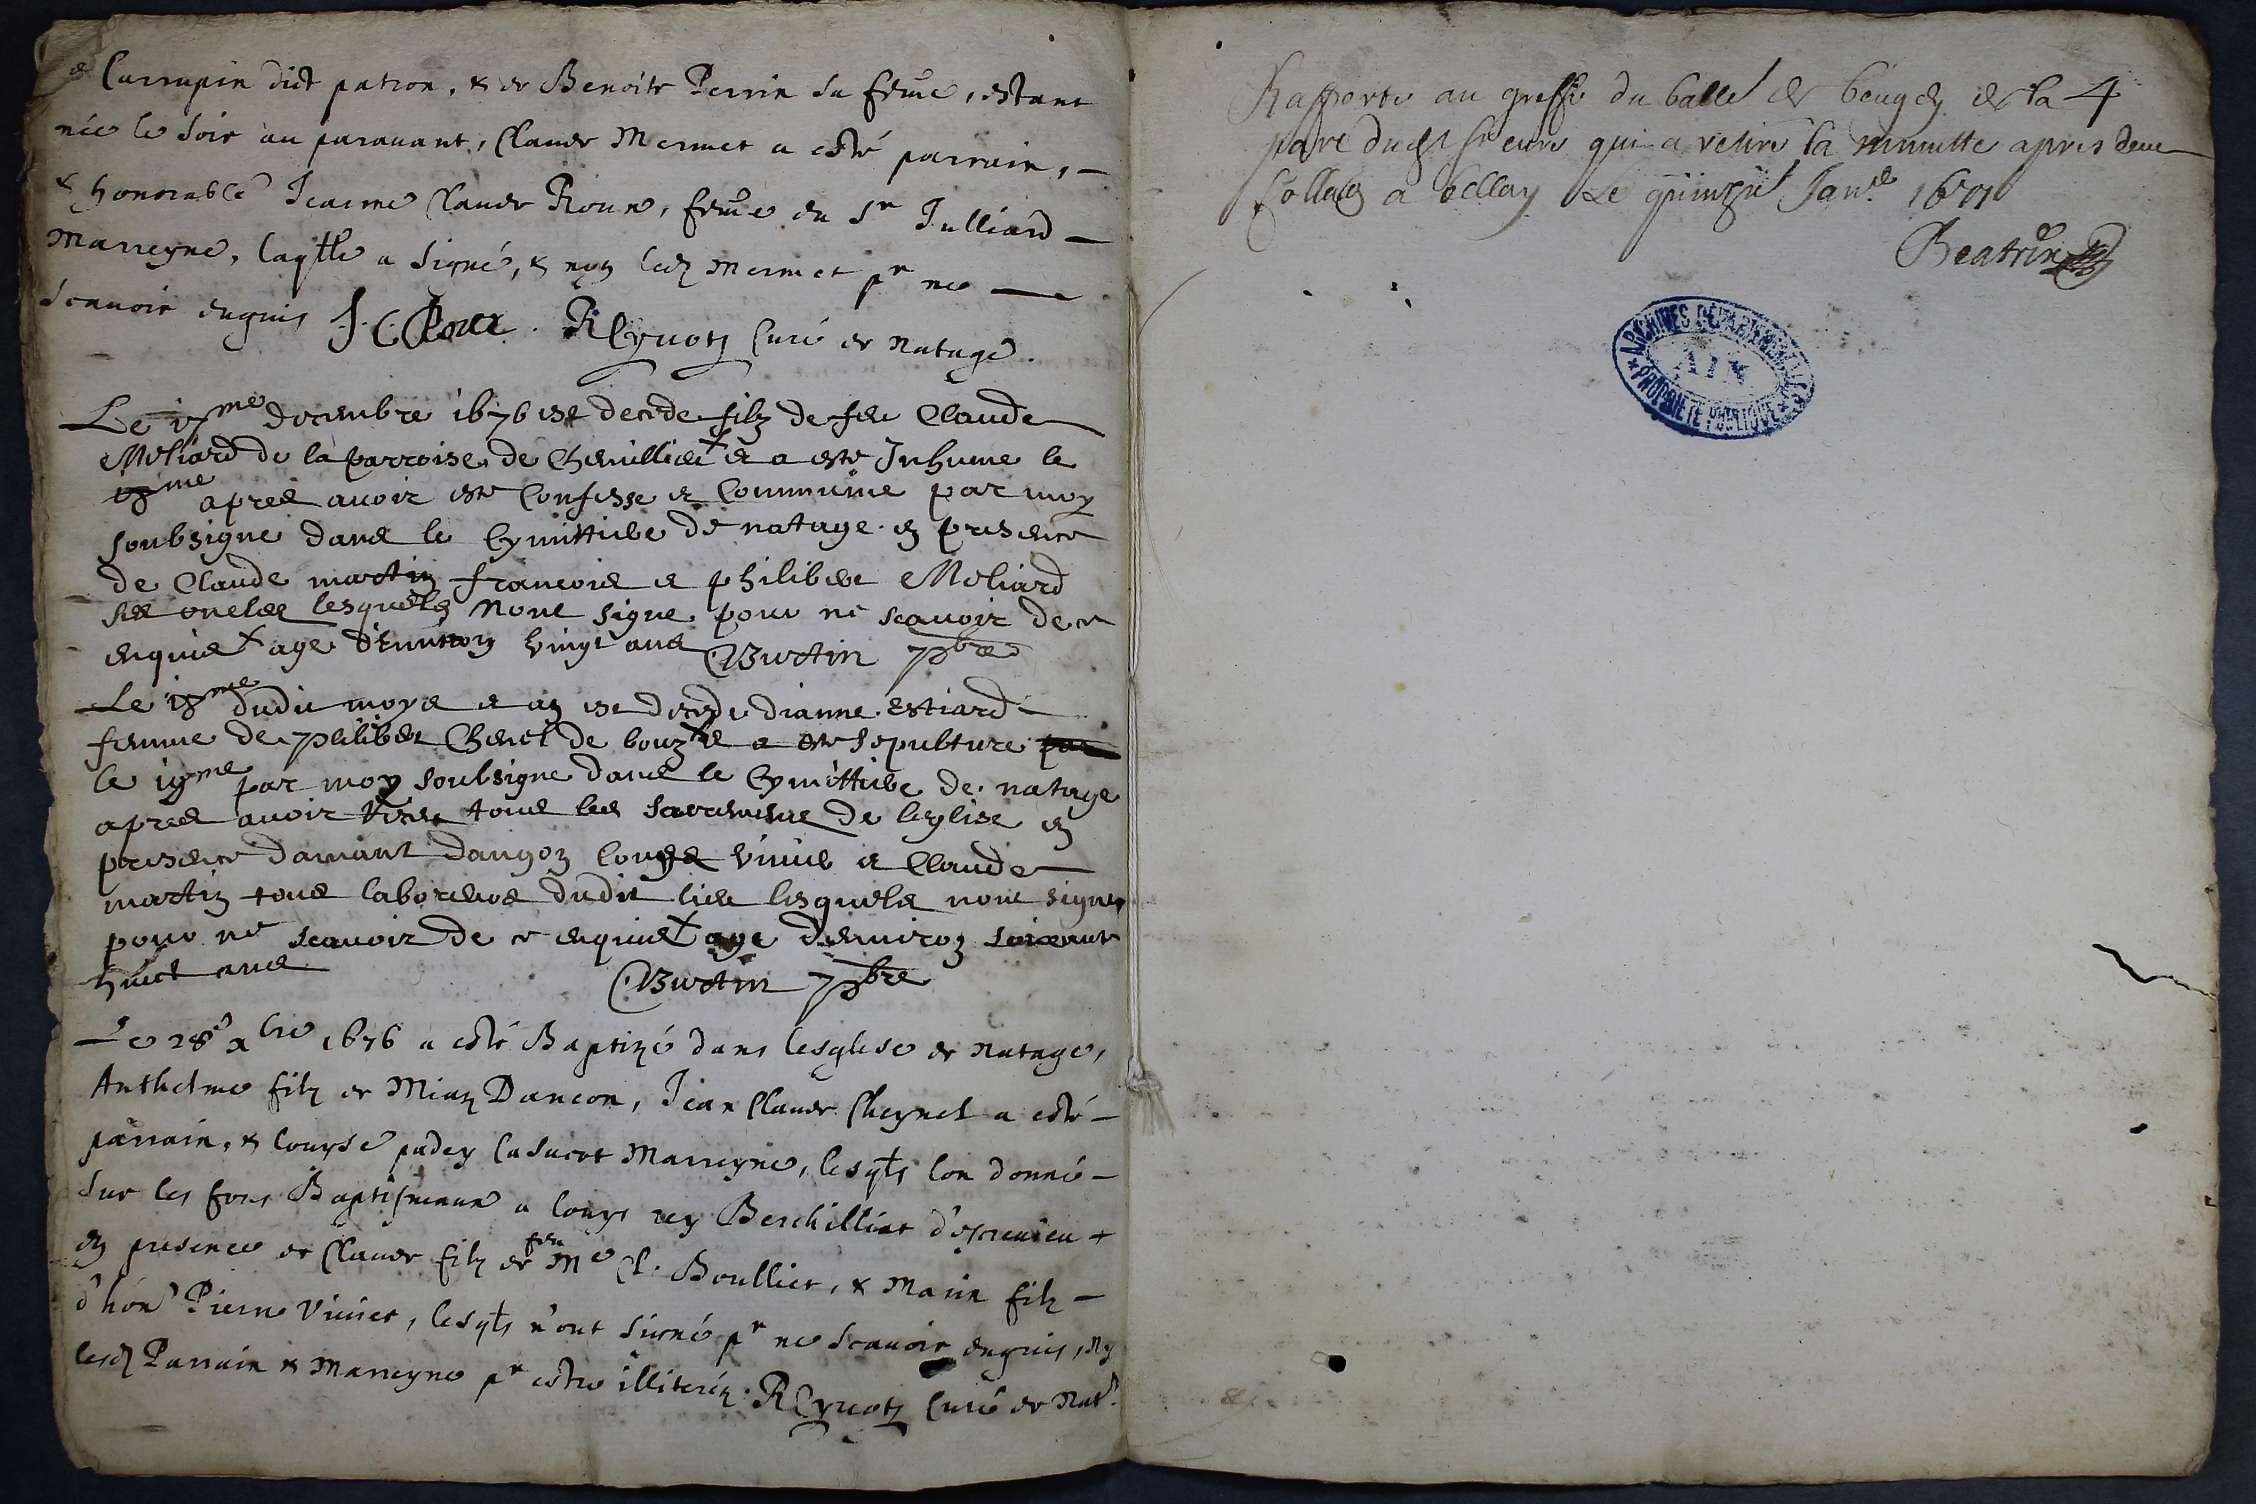 Carrupin dict patron, & de Benoite Perrin sa feme, estant
née le soir au paravant, Claude Mermet a esté parrain, -
& honorable Jeanne Claude Roux, feme du Sr Julliard -
Marreyne, laqlle a signé, & non led Mermet pr ne -
scavoir enquis J. C. Roux. R Cyvotz Curé de Natage.
Le 17me decembre 1676 est decede filz de feu Claude
Moliard de la parroise de et a este Inhume le
18me apres avoir este Confesse et Communie par moy
soubsigne dans le Cymittiere de natage en presence
de Claude martin francois et philibert Moliard
ses oncles lesquels nont signe pour ne scavoir de ce
enquis age d'environ vingt ans Burtin pbre
Le 18me dudit moys et an est decede dianne estiard
femme de philibert de a este sepulture
le 19me par moy soubsigne dans le Cymittiere de natage
apres avoir tous les sacremens de leglise en
presence damant dangon Louys Vivie et Claude
martin tous laboreurs dudit lieu lesquels nont signe
pour ne scavoir de ce enquis age denviron soixante
huict ans Burtin pbre
Le 28e xbre 1676 a esté Baptizé dans lesglise de Natage,
Anthelme filz de Dancon, Jean Claude Cheynel a esté -
parrain, & Louyse padey Marreyne, lesqls lon donné -
sur les fons Baptismaux a Louys rey Berchilliat
en presence de Claude filz de feu Me Cl. Boullier, & Marin filz -
d'hon Pierre Vivier, lesqls n'ont signé pr ne scavoir enquis, ny
lesd Parrain & Marreyne pr estre illiteréz. R Cyvotz Curé de Nat.
Rapporte au greffe du balle de beugey de la 4
part dudit Sr cure qui a retiré la minutte apres deue
Colla a bellay le Janr 1677
Beatrix
ARCHIVES DÉPARTEMENTALES
AIN
PROPRIÉTÉ PUBLIQUE